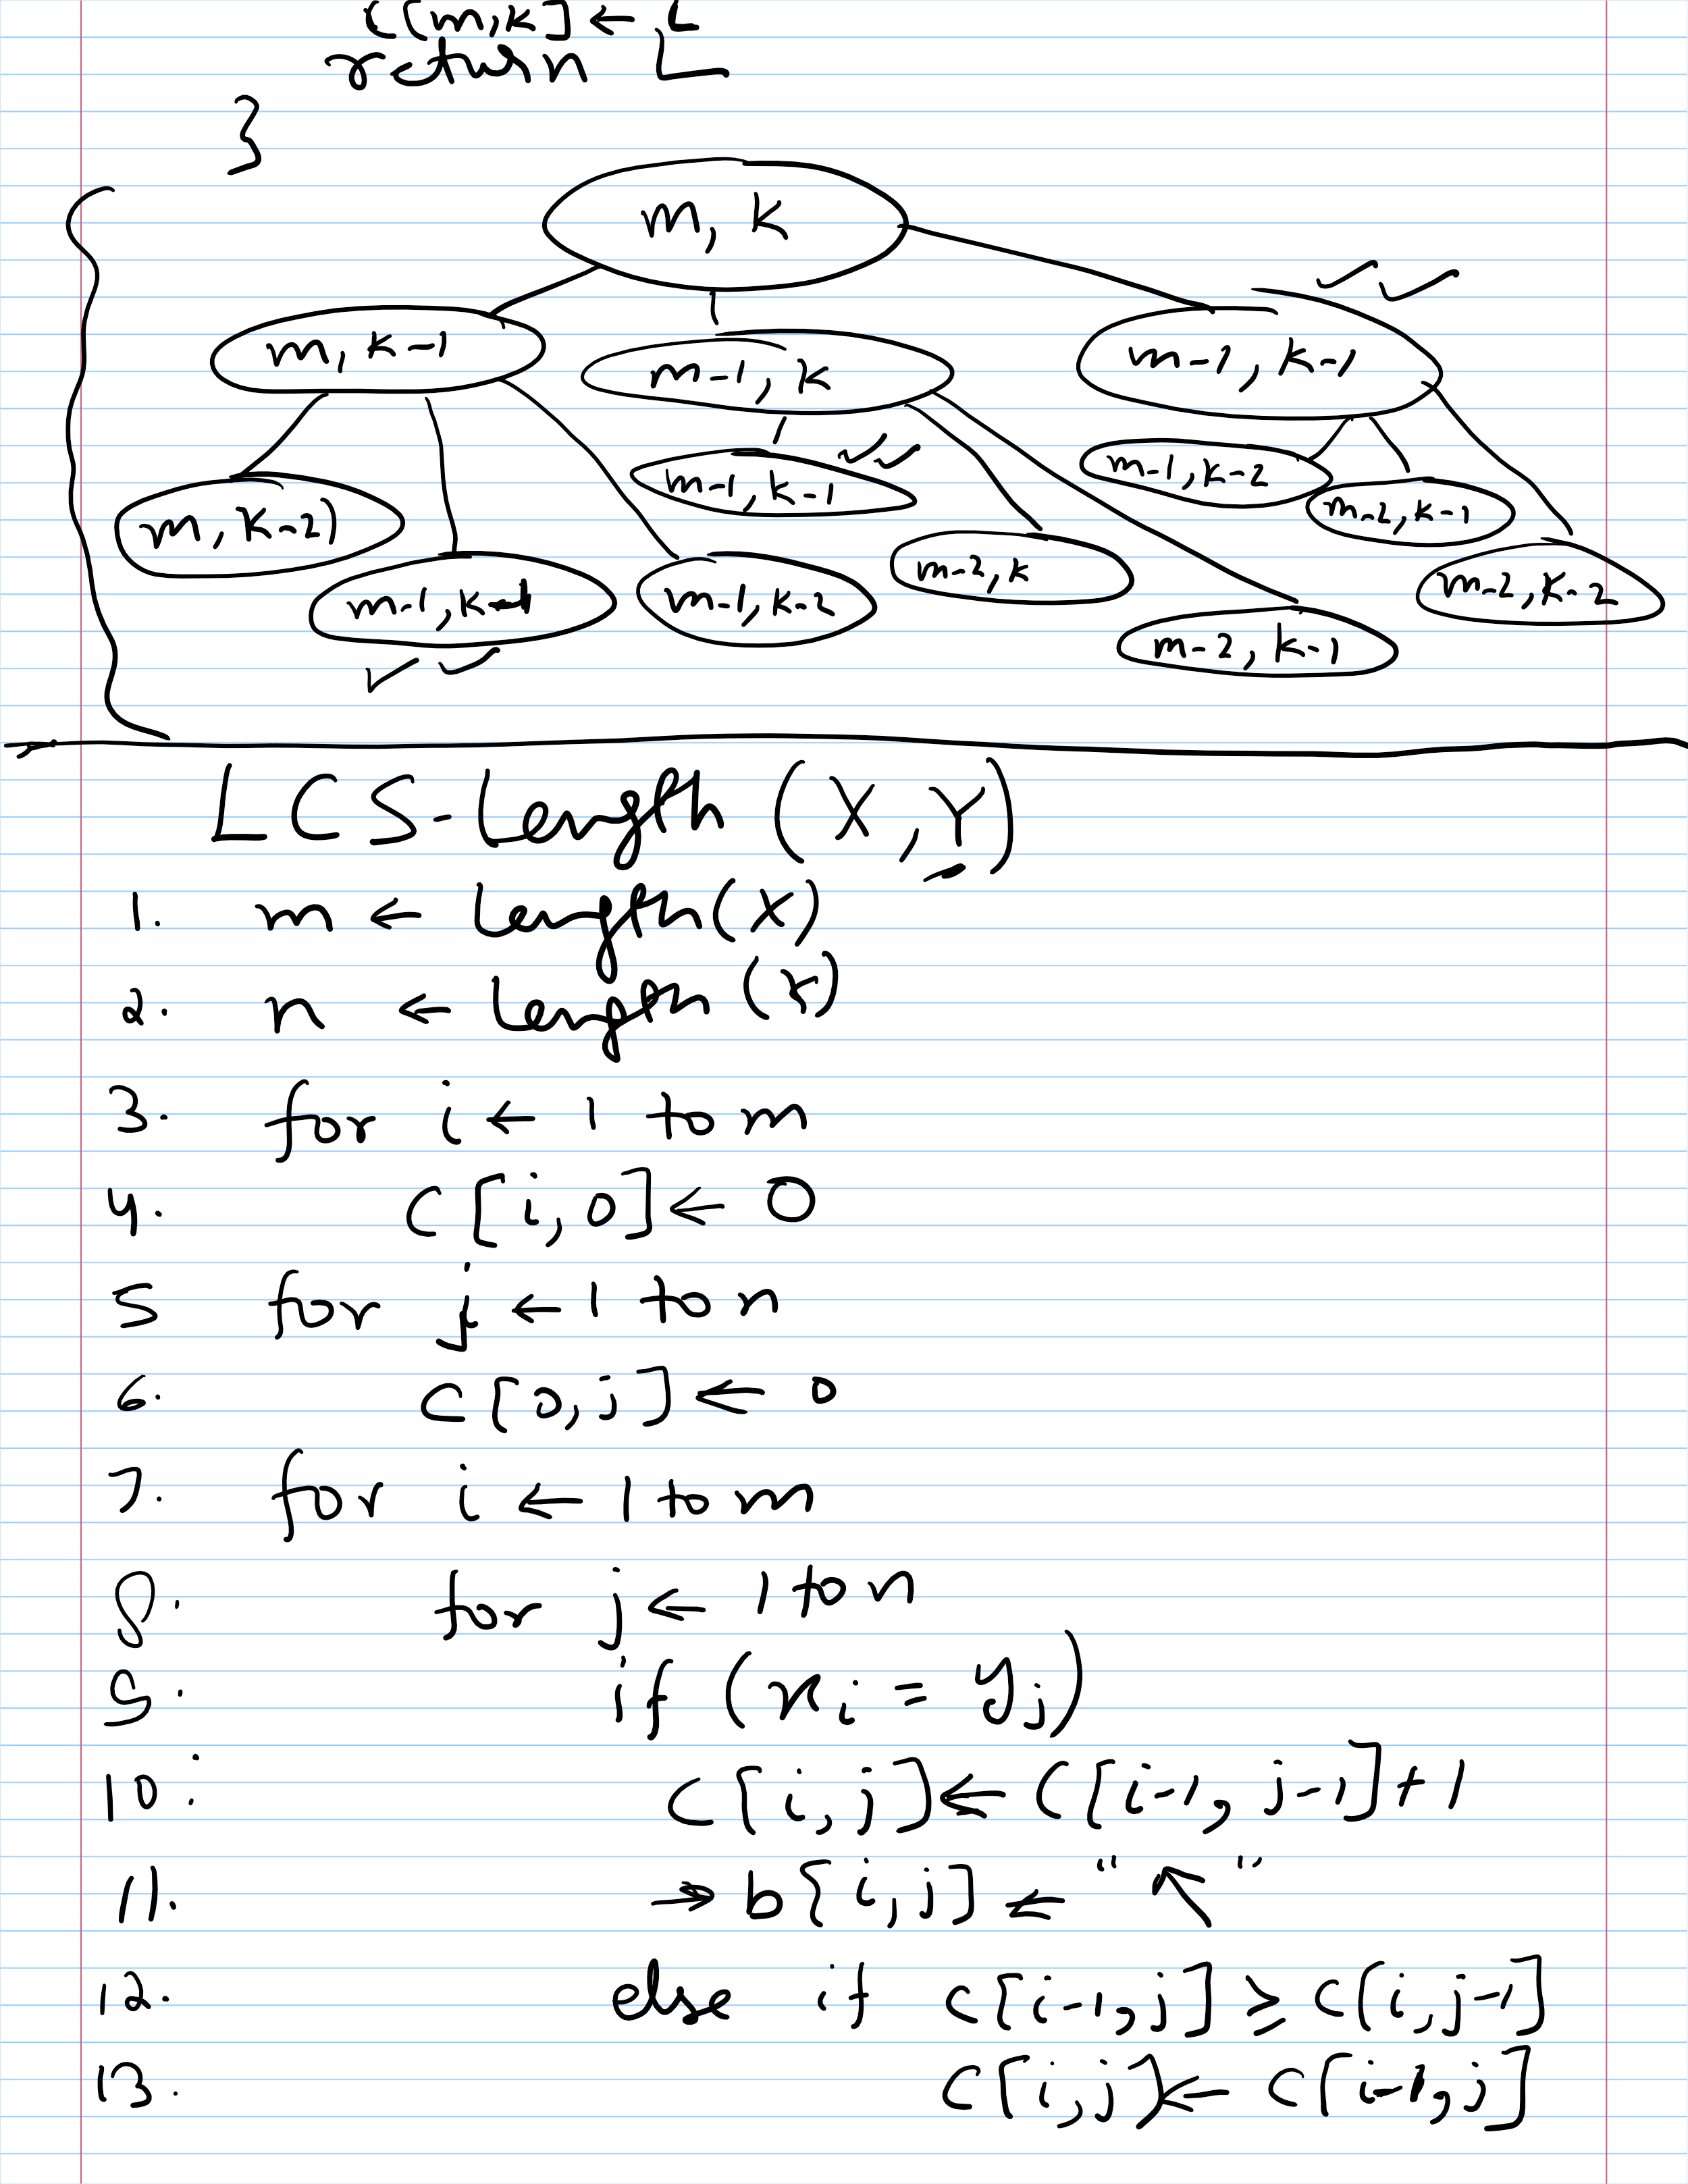 C[m,k] ← L
return L
}
m, k
m, k-1
m-1, k
m-1, k-1
m, k-2
m-1, k-1
m-1, k-2
m-1, k-1
m-2, k
m-2, k-1
m-1, k-2
m-2, k-1
m-2, k-2
LCS-Length (X, Y)
1. m ← Length(X)
2. n ← Length(Y)
3. for i ← 1 to m
4. C[i,0] ← 0
5 for j ← 1 to n
6. C[0,j] ← 0
7. for i ← 1 to m
8. for j ← 1 to n
9. if (xi = yj)
10. C[i,j] ← C[i-1, j-1] + 1
11. → b[i,j] ← "↖"
12. else if C[i-1,j] ≥ C[i,j-1]
13. C[i,j] ← C[i-1,j]